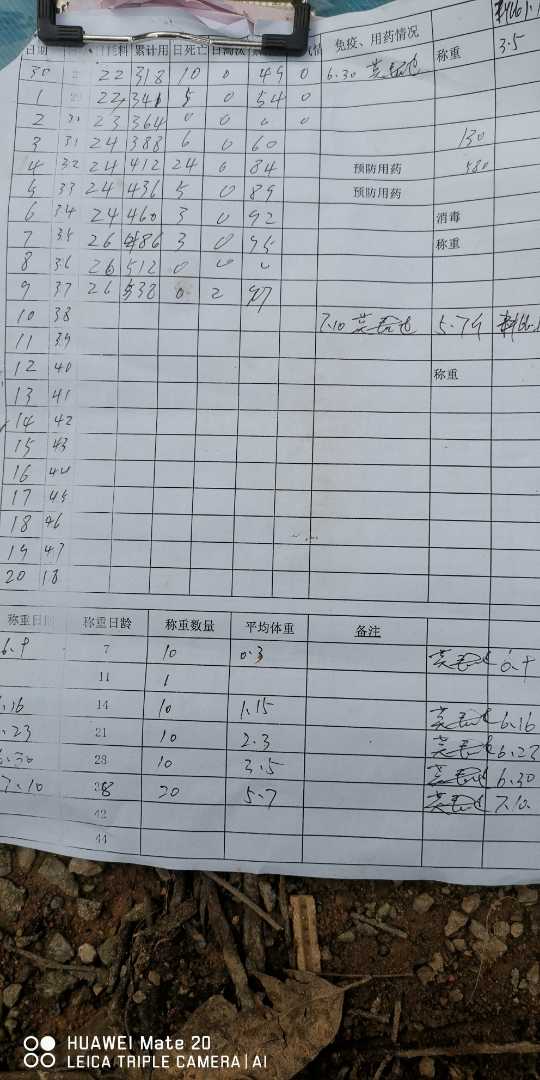 日期 日耗料 累计用 日死亡 日淘汰 免疫、用药情况 称重 3.5
30 22 318 10 0 49 0 6.30
1 22 340 5 0 54 0
2 30 23 364 0 0 0 0
3 31 24 388 6 0 60 130
4 32 24 412 24 0 84 预防用药 580
5 33 24 436 5 0 89 预防用药
6 34 24 460 3 0 92 消毒
7 35 26 486 3 0 95 称重
8 36 26 512 0 0 0
9 37 26 538 0 2 97
10 38 7.10 5.7斤
11 39
12 40 称重
13 41
14 42
15 43
16 44
17 45
18 46
19 47
20 18
称重日期 称重日龄 称重数量 平均体重 备注
6.9 7 10 0.3 6.9
11 1
6.16 14 10 1.15 6.16
6.23 21 10 2.3 6.23
6.30 28 10 3.5 6.30
7.10 38 20 5.7 7.10
42
44
HUAWEI Mate 20
LEICA TRIPLE CAMERA | AI